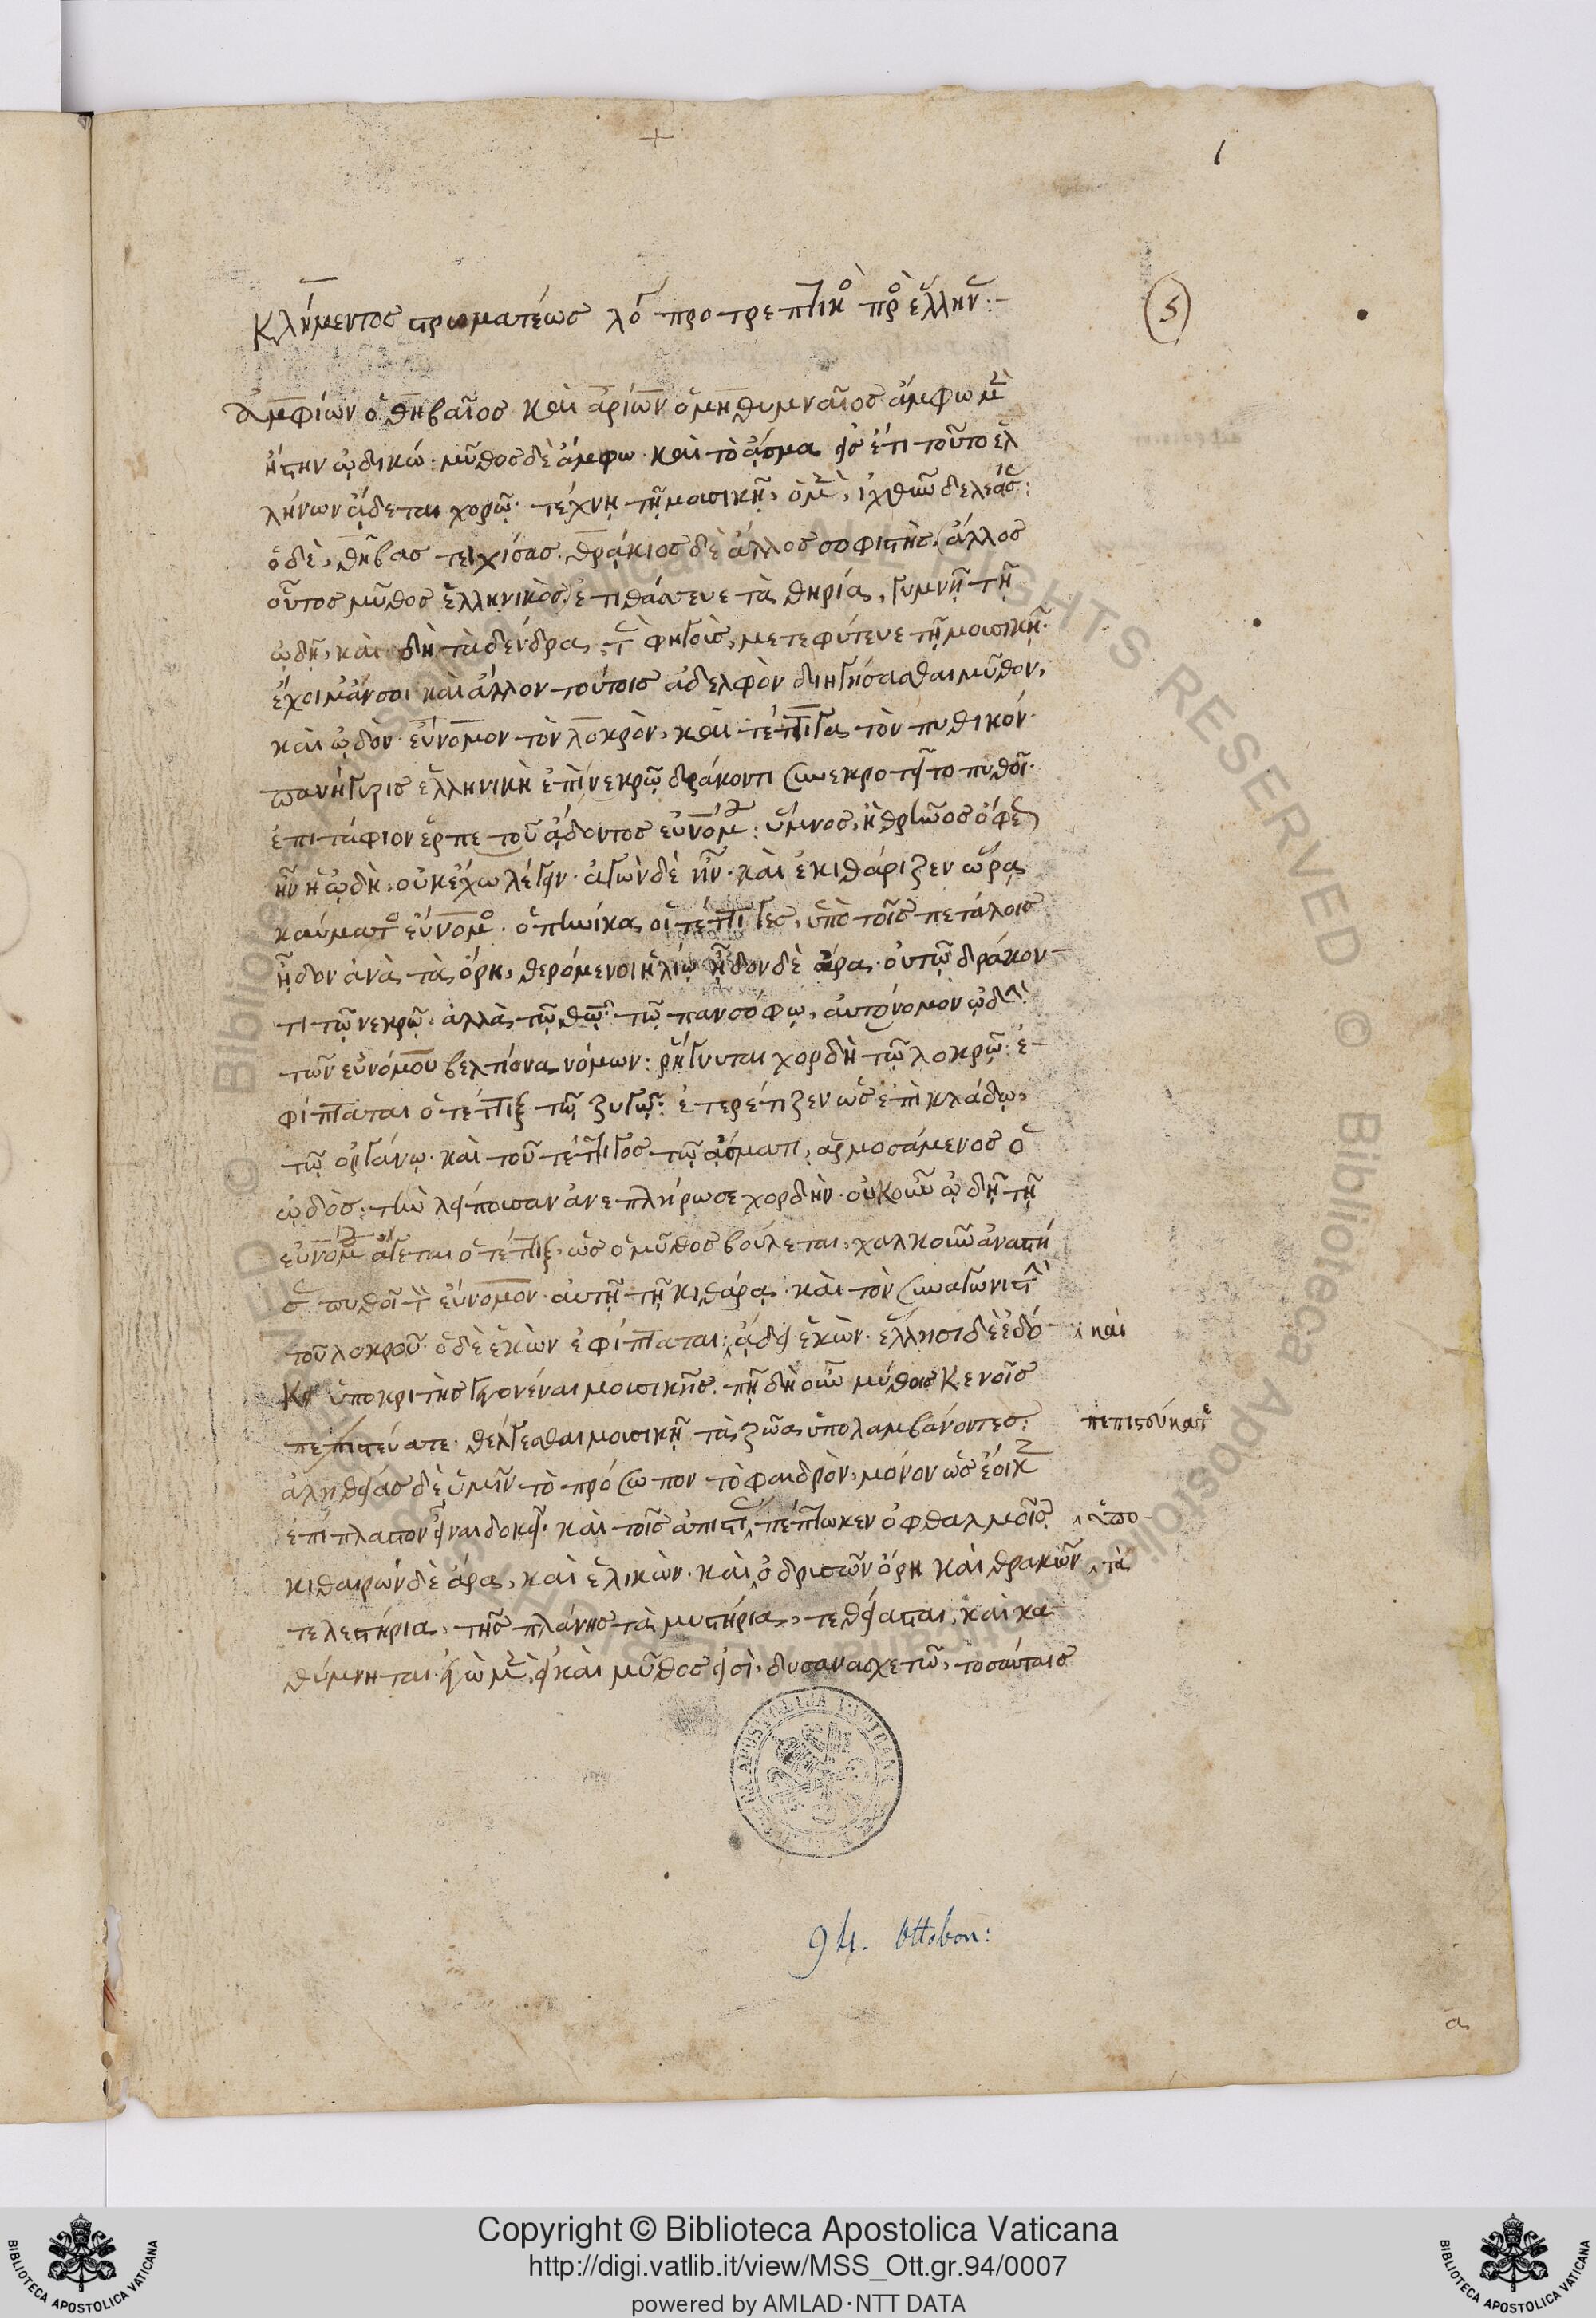 1
5
Κλήμεντος στρωματέως λό προτρεπτικὸ πρὸ ἕλλην:-
ἀμφίων ὁ θηβαῖος καὶ ἀρίων ὁ μηθυμναῖος ἄμφω μὲ
ἤστην ᾠδικώ· μῦθος δὲ ἄμφω· καὶ τὸ ᾆσμα εἰς ἔτι τοῦτο ἑλ
λήνων ᾄδεται χορῷ· τέχνῃ τῇ μουσικῇ, ὁ μὲ, ἰχθῦν δελεάσ:
ὁ δὲ, θήβας τειχίσας· θρᾴκιος δὲ ἄλλος σοφιστὴς, ἄλλος
οὗτος μῦθος ἑλληνικὸς, ἐτιθάσευε τὰ θηρία, γυμνῇ τῇ
ᾠδῇ, καὶ δὴ τὰ δένδρα, τ φηγοὺς, μετεφύτευε τῇ μουσικῇ·
ἔχοιμ' ἄν σοι καὶ ἄλλον τούτοις ἀδελφὸν διηγήσασθαι μῦθον,
καὶ ᾠδὸν· εὔνομον τὸν λοκρὸν, καὶ τέττιγα τὸν πυθικόν·
πανήγυρις ἑλληνικὴ ἐπὶ νεκρῷ δράκοντι συνεκροτεῖτο πυθοῖ·
ἐπιτάφιον ἑρπετοῦ ᾄδοντος εὐνόμ: ὕμνος, ἢ θρῆνος ὄφε
ἦν ἡ ᾠδὴ, οὐκ ἔχω λέγειν· ἀγὼν δὲ ἦν· καὶ ἐκιθάριζεν ὥρᾳ
καύματ εὔνομο· ὁπηνίκα οἱ τέττιγες, ὑπὸ τοῖς πετάλοις
ᾖδον ἀνὰ τὰ ὄρη, θερόμενοι ἡλίῳ ᾖδον δὲ ἄρα· οὐ τῷ δράκον-
τι τῷ νεκρῷ· ἀλλὰ τῷ θῷ τῷ πανσόφῳ, αὐτόνομον ᾠδὴ
τῶν εὐνόμου βελτίονα νόμων: ῥήγνυται χορδὴ τῷ λοκρῷ: ἐ-
φίπταται ὁ τέττιξ τῷ ζυγῷ: ἐτερέτιζεν ὡς ἐπὶ κλάδῳ,
τῷ ὀργάνῳ· καὶ τοῦ τέττιγος τῷ ᾄσματι, ἁρμοσάμενος ὁ
ᾠδὸς, τὴν λείπουσαν ἀνεπλήρωσε χορδὴν· οὔκουν ᾠδῇ τῇ
εὐνόμ ἄγεται ὁ τέττιξ, ὡς ὁ μῦθος βούλεται, χαλκοῦν ἀναστή
σ πυθοῖ τ εὔνομον· αὐτῇ τῇ κιθάρᾳ· καὶ τὸν συναγωνιστὴ
τοῦ λοκροῦ· ὁ δὲ ἑκὼν ἐφίπταται: ᾄδει ἑκὼν· ἕλλησι δὲ ἐδό
καὶ
κει ὑποκριτὴς γεγονέναι μουσικῆς. πῇ δὴ οὖν μύθοις κενοῖς
πεπιστεύατε· θέλγεσθαι μουσικῇ τὰ ζῶα ὑπολαμβάνοντες:
πεπιστεύκατε
ἀληθείας δὲ ὑμῖν τὸ πρόσωπον τὸ φαιδρὸν, μόνον ὡς ἔοικ
ἐπίπλαστον εἶναι δοκεῖ· καὶ τοῖς ἀπιστ πέπτωκεν ὀφθαλμοῖς:
ὑπο-
κιθαιρών δὲ ἄρα, καὶ ἑλικὼν· καὶ ὀδρυσῶν ὄρη καὶ θρακῶν
τὰ
τελεστήρια, τῆς πλάνης τὰ μυστήρια, τεθείασται, καὶ κα
θύμνηται· ἐγὼ μὲ, εἰ καὶ μῦθος εἰσὶ, δυσανασχετῶ, τοσούταις
94. Ottobon:
α
Copyright © Biblioteca Apostolica Vaticana
http://digi.vatlib.it/view/MSS_Ott.gr.94/0007
powered by AMLAD·NTT DATA
BIBLIOTECA APOSTOLICA VATICANA
BIBLIOTECA APOSTOLICA VATICANA